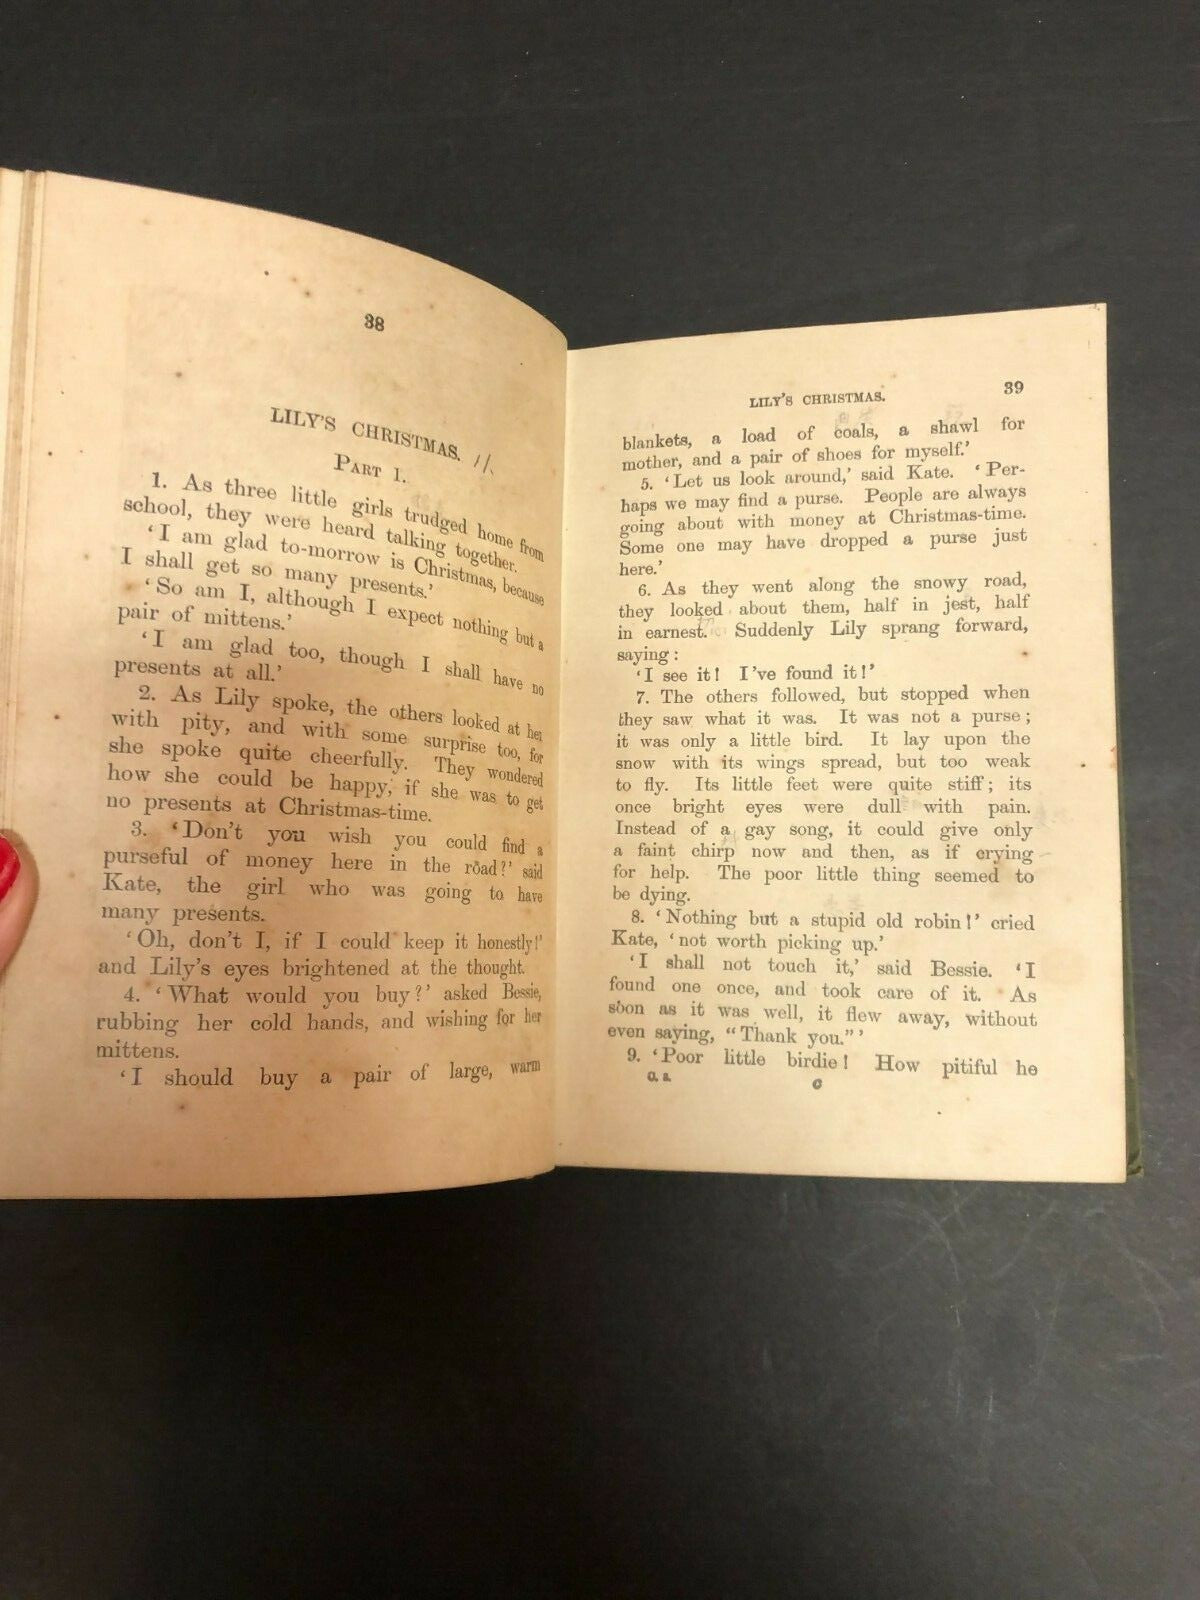 38
LILY'S CHRISTMAS. 11.
PART I.
1. As three little girls trudged home from
school, they were heard talking together.
'I am glad to-morrow is Christmas, because
I shall get so many presents.'
'So am I, although I expect nothing but a
pair of mittens.'
'I am glad too, though I shall have no
presents at all.'
2. As Lily spoke, the others looked at her
with pity, and with some surprise too, for
she spoke quite cheerfully. They wondered
how she could be happy, if she was to get
no presents at Christmas-time.
3. 'Don't you wish you could find a
purseful of money here in the road?' said
Kate, the girl who was going to have
many presents.
'Oh, don't I, if I could keep it honestly!'
and Lily's eyes brightened at the thought.
4. 'What would you buy?' asked Bessie,
rubbing her cold hands, and wishing for her
mittens.
'I should buy a pair of large, warm
LILY'S CHRISTMAS. 39
blankets, a load of coals, a shawl for
mother, and a pair of shoes for myself.'
5. 'Let us look around,' said Kate. 'Per-
haps we may find a purse. People are always
going about with money at Christmas-time.
Some one may have dropped a purse just
here.'
6. As they went along the snowy road,
they looked about them, half in jest, half
in earnest. Suddenly Lily sprang forward,
saying:
'I see it! I've found it!'
7. The others followed, but stopped when
they saw what it was. It was not a purse;
it was only a little bird. It lay upon the
snow with its wings spread, but too weak
to fly. Its little feet were quite stiff; its
once bright eyes were dull with pain.
Instead of a gay song, it could give only
a faint chirp now and then, as if crying
for help. The poor little thing seemed to
be dying.
8. 'Nothing but a stupid old robin!' cried
Kate, 'not worth picking up.'
'I shall not touch it,' said Bessie. 'I
found one once, and took care of it. As
soon as it was well, it flew away, without
even saying, "Thank you."'
9. 'Poor little birdie! How pitiful he
C